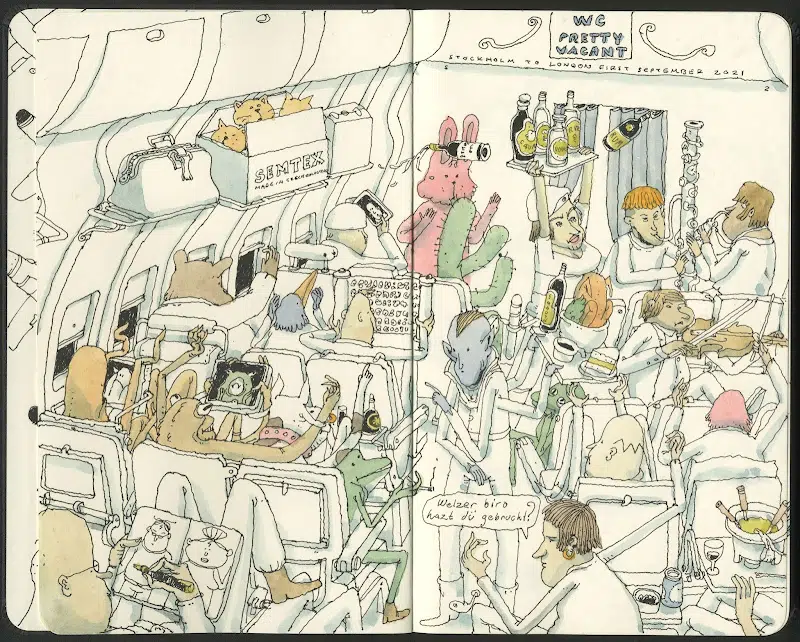 WC
PRETTY
VACANT
STOCKHOLM TO LONDON FIRST SEPTEMBER 2021
SEMTEX
MADE IN CZECHOSLOVAKIA
Welzer biro
hazt dü gebrucht?